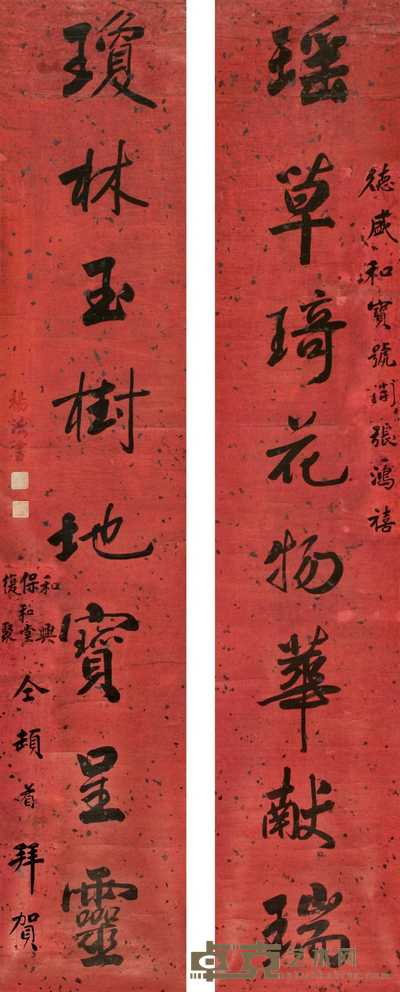 德盛和寶號開張鴻禧
瑶草琦花物華献瑞
瓊林玉樹地寶呈靈
和興
保和堂
復聚
仝頓首拜賀